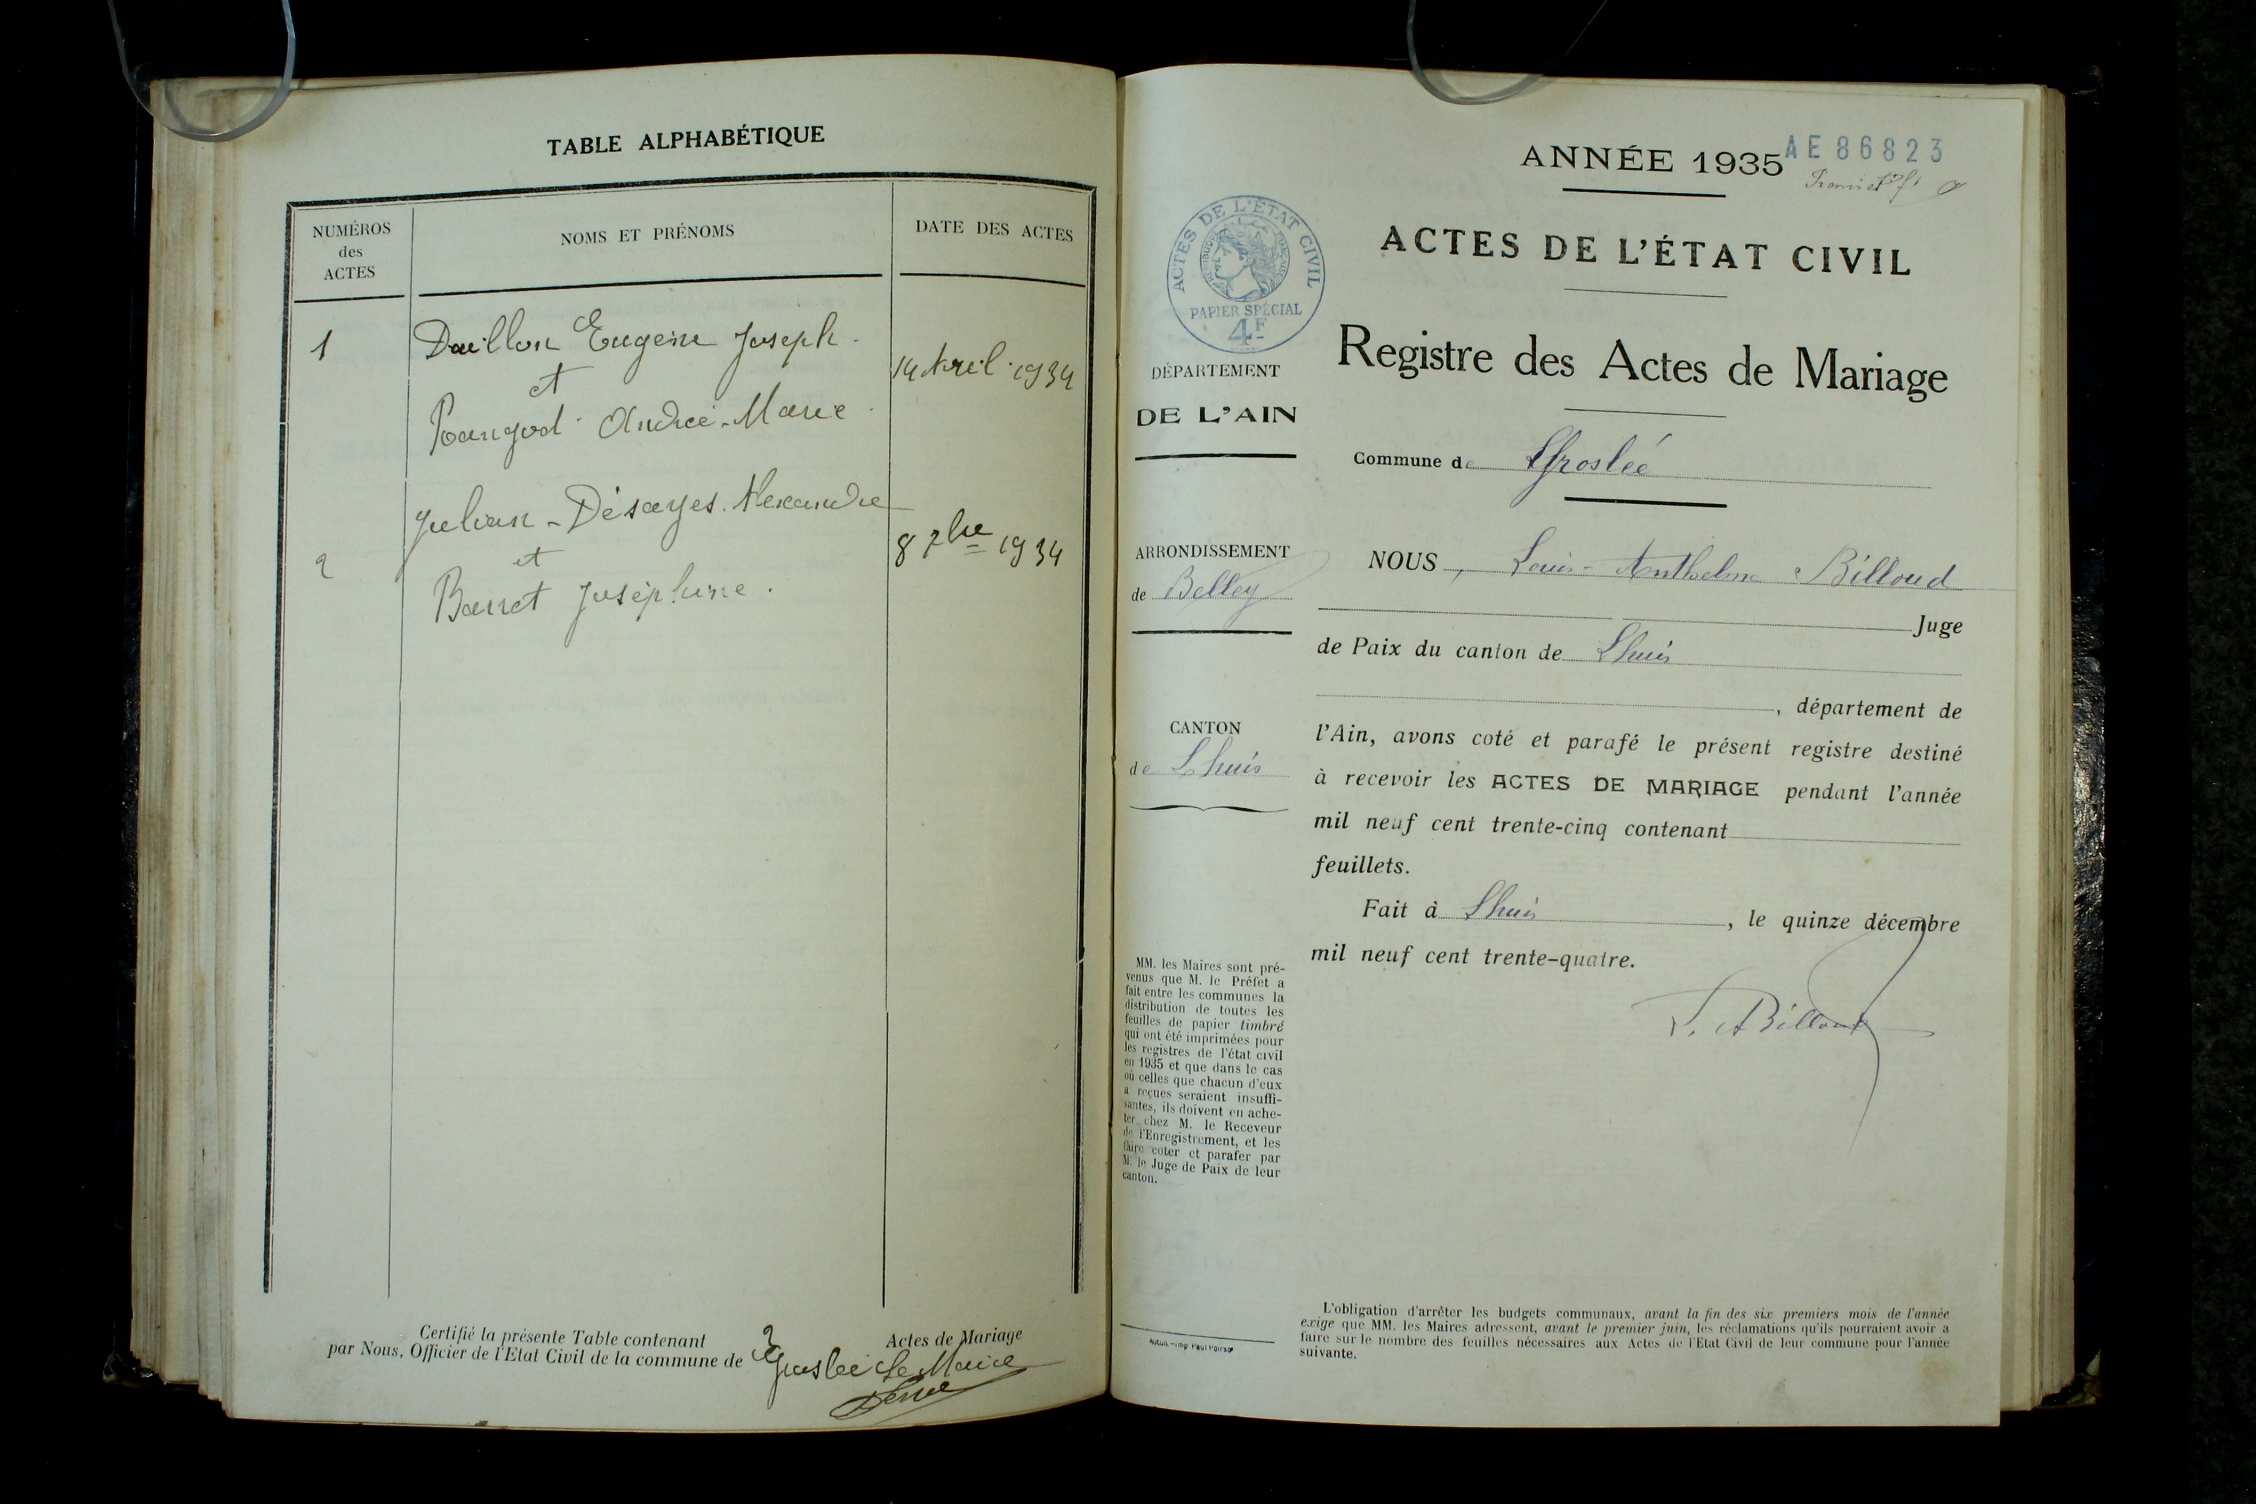 TABLE ALPHABÉTIQUE
NUMÉROS
des
ACTES
NOMS ET PRÉNOMS
DATE DES ACTES
1
Douillon Eugène Joseph
et
14 Avril 1934
Pangod Andrée-Marie
Julian-Désayes Alexandre
2
et
8 7bre 1934
Barret Joséphine.
Certifié la présente Table contenant 2 Actes de Mariage
par Nous, Officier de l'Etat Civil de la commune de Groslée Le Maire
ANNÉE 1935
AE86823
ACTES DE L'ÉTAT CIVIL
PAPIER SPÉCIAL
4F
DÉPARTEMENT
DE L'AIN
ARRONDISSEMENT
de Belley
CANTON
de Lhuis
MM. les Maires sont pré-
venus que M. le Préfet a
fait entre les communes la
distribution de toutes les
feuilles de papier timbré
qui ont été imprimées pour
les registres de l'état civil
en 1935 et que dans le cas
où celles que chacun d'eux
a reçues seraient insuffi-
santes, ils doivent en ache-
ter chez M. le Receveur
de l'Enregistrement, et les
faire coter et parafer par
M. le Juge de Paix de leur
canton.
ACTES DE L'ÉTAT CIVIL
Registre des Actes de Mariage
Commune de Groslée
NOUS, Louis-Anthelme Billoud
Juge
de Paix du canton de Lhuis
, département de
l'Ain, avons coté et parafé le présent registre destiné
à recevoir les ACTES DE MARIAGE pendant l'année
mil neuf cent trente-cinq contenant
feuillets.
Fait à Lhuis, le quinze décembre
mil neuf cent trente-quatre.
L. A Billoud
L'obligation d'arrêter les budgets communaux, avant la fin des six premiers mois de l'année
exige que MM. les Maires adressent, avant le premier juin, les réclamations qu'ils pourraient avoir à
faire sur le nombre des feuilles nécessaires aux Actes de l'Etat Civil de leur commune pour l'année
suivante.